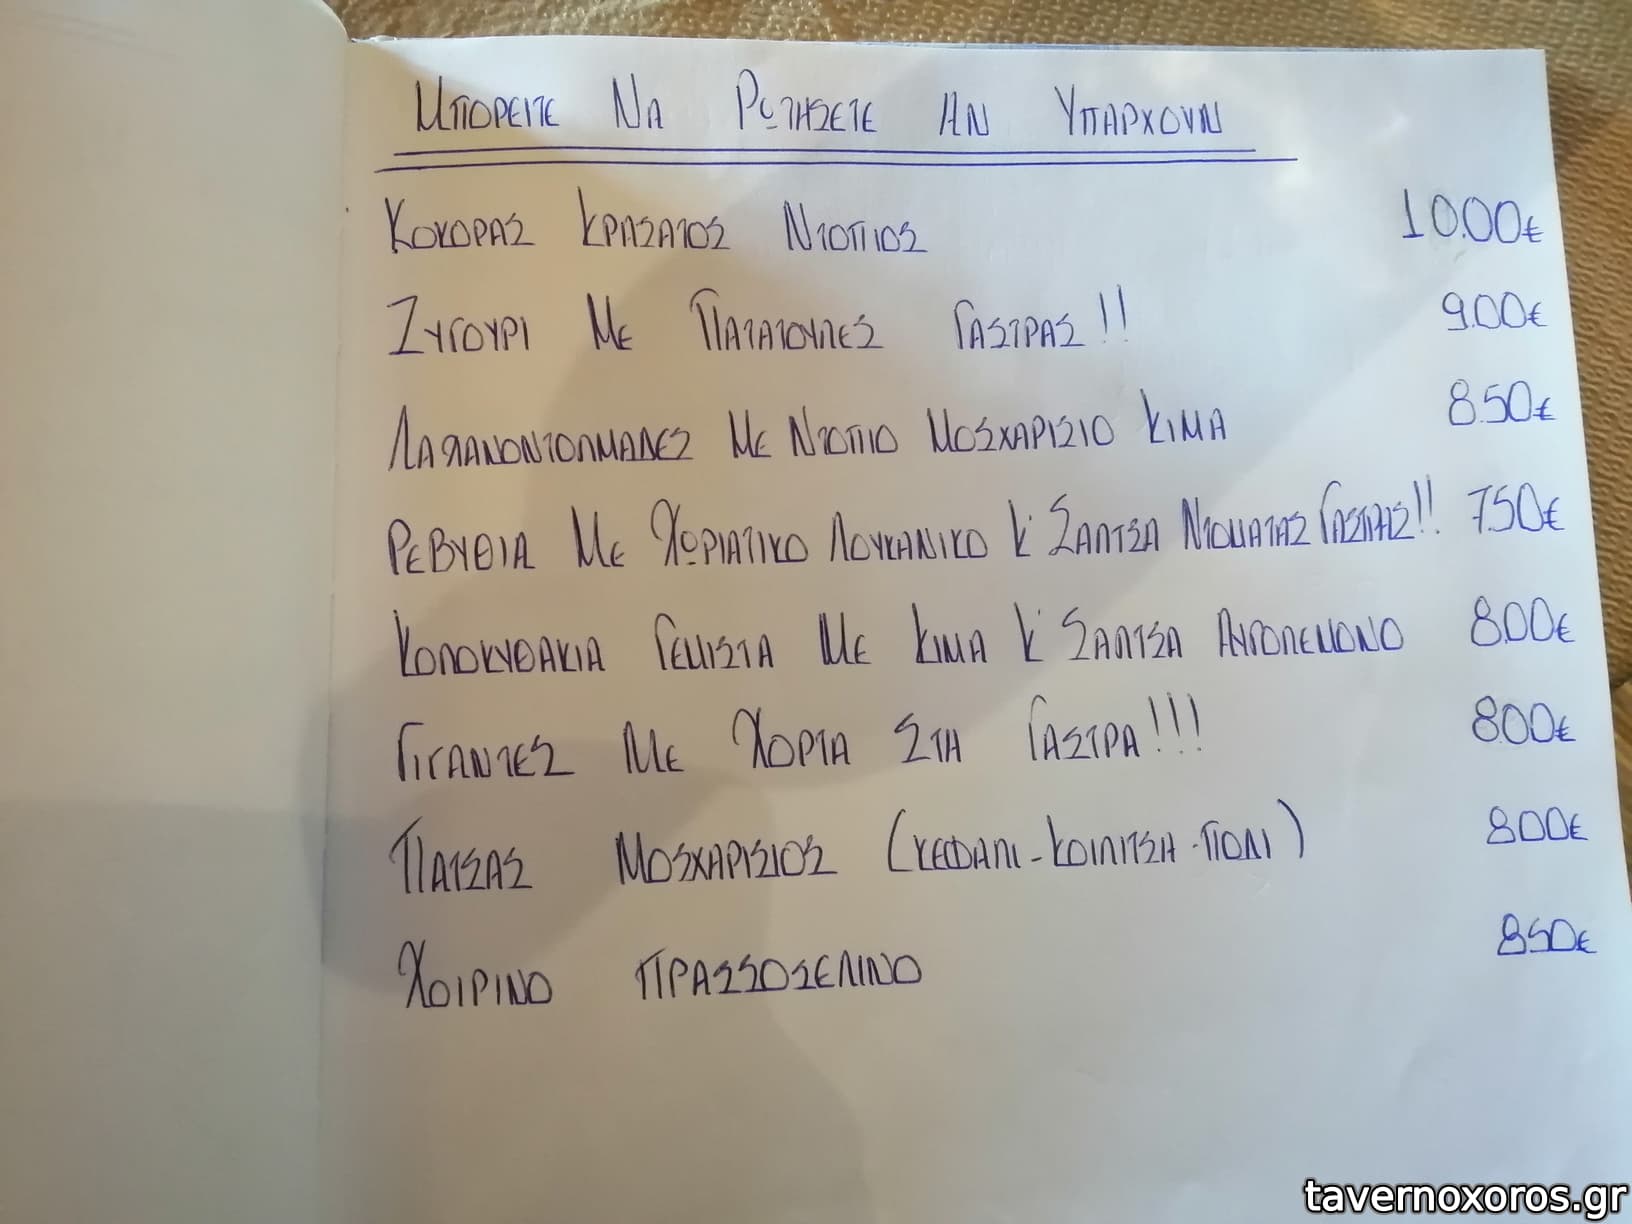 ΜΠΟΡΕΙΤΕ ΝΑ ΡΩΤΗΣΕΤΕ ΑΝ ΥΠΑΡΧΟΥΝ
ΚΟΚΟΡΑΣ ΚΡΑΣΑΤΟΣ ΝΤΟΠΙΟΣ 10.00€
ΖΥΓΟΥΡΙ ΜΕ ΠΑΤΑΤΟΥΛΕΣ ΓΑΣΤΡΑΣ!! 9.00€
ΛΑΧΑΝΟΝΤΟΛΜΑΔΕΣ ΜΕ ΝΤΟΠΙΟ ΜΟΣΧΑΡΙΣΙΟ ΚΙΜΑ 8.50€
ΡΕΒΥΘΙΑ ΜΕ ΧΩΡΙΑΤΙΚΟ ΛΟΥΚΑΝΙΚΟ Κ' ΣΑΛΤΣΑ ΝΤΟΜΑΤΑΣ ΓΑΣΤΡΑΣ!! 7.50€
ΚΟΛΟΚΥΘΑΚΙΑ ΓΕΜΙΣΤΑ ΜΕ ΚΙΜΑ Κ' ΣΑΛΤΣΑ ΑΥΓΟΛΕΜΟΝΟ 8.00€
ΓΙΓΑΝΤΕΣ ΜΕ ΧΟΡΤΑ ΣΤΗ ΓΑΣΤΡΑ!!! 8.00€
ΠΑΤΣΑΣ ΜΟΣΧΑΡΙΣΙΟΣ (ΚΕΦΑΛΙ-ΚΟΙΛΙΤΣΑ-ΠΟΔΙ) 8.00€
ΧΟΙΡΙΝΟ ΠΡΑΣΣΟΣΕΛΙΝΟ 8.50€
tavernoxoros.gr